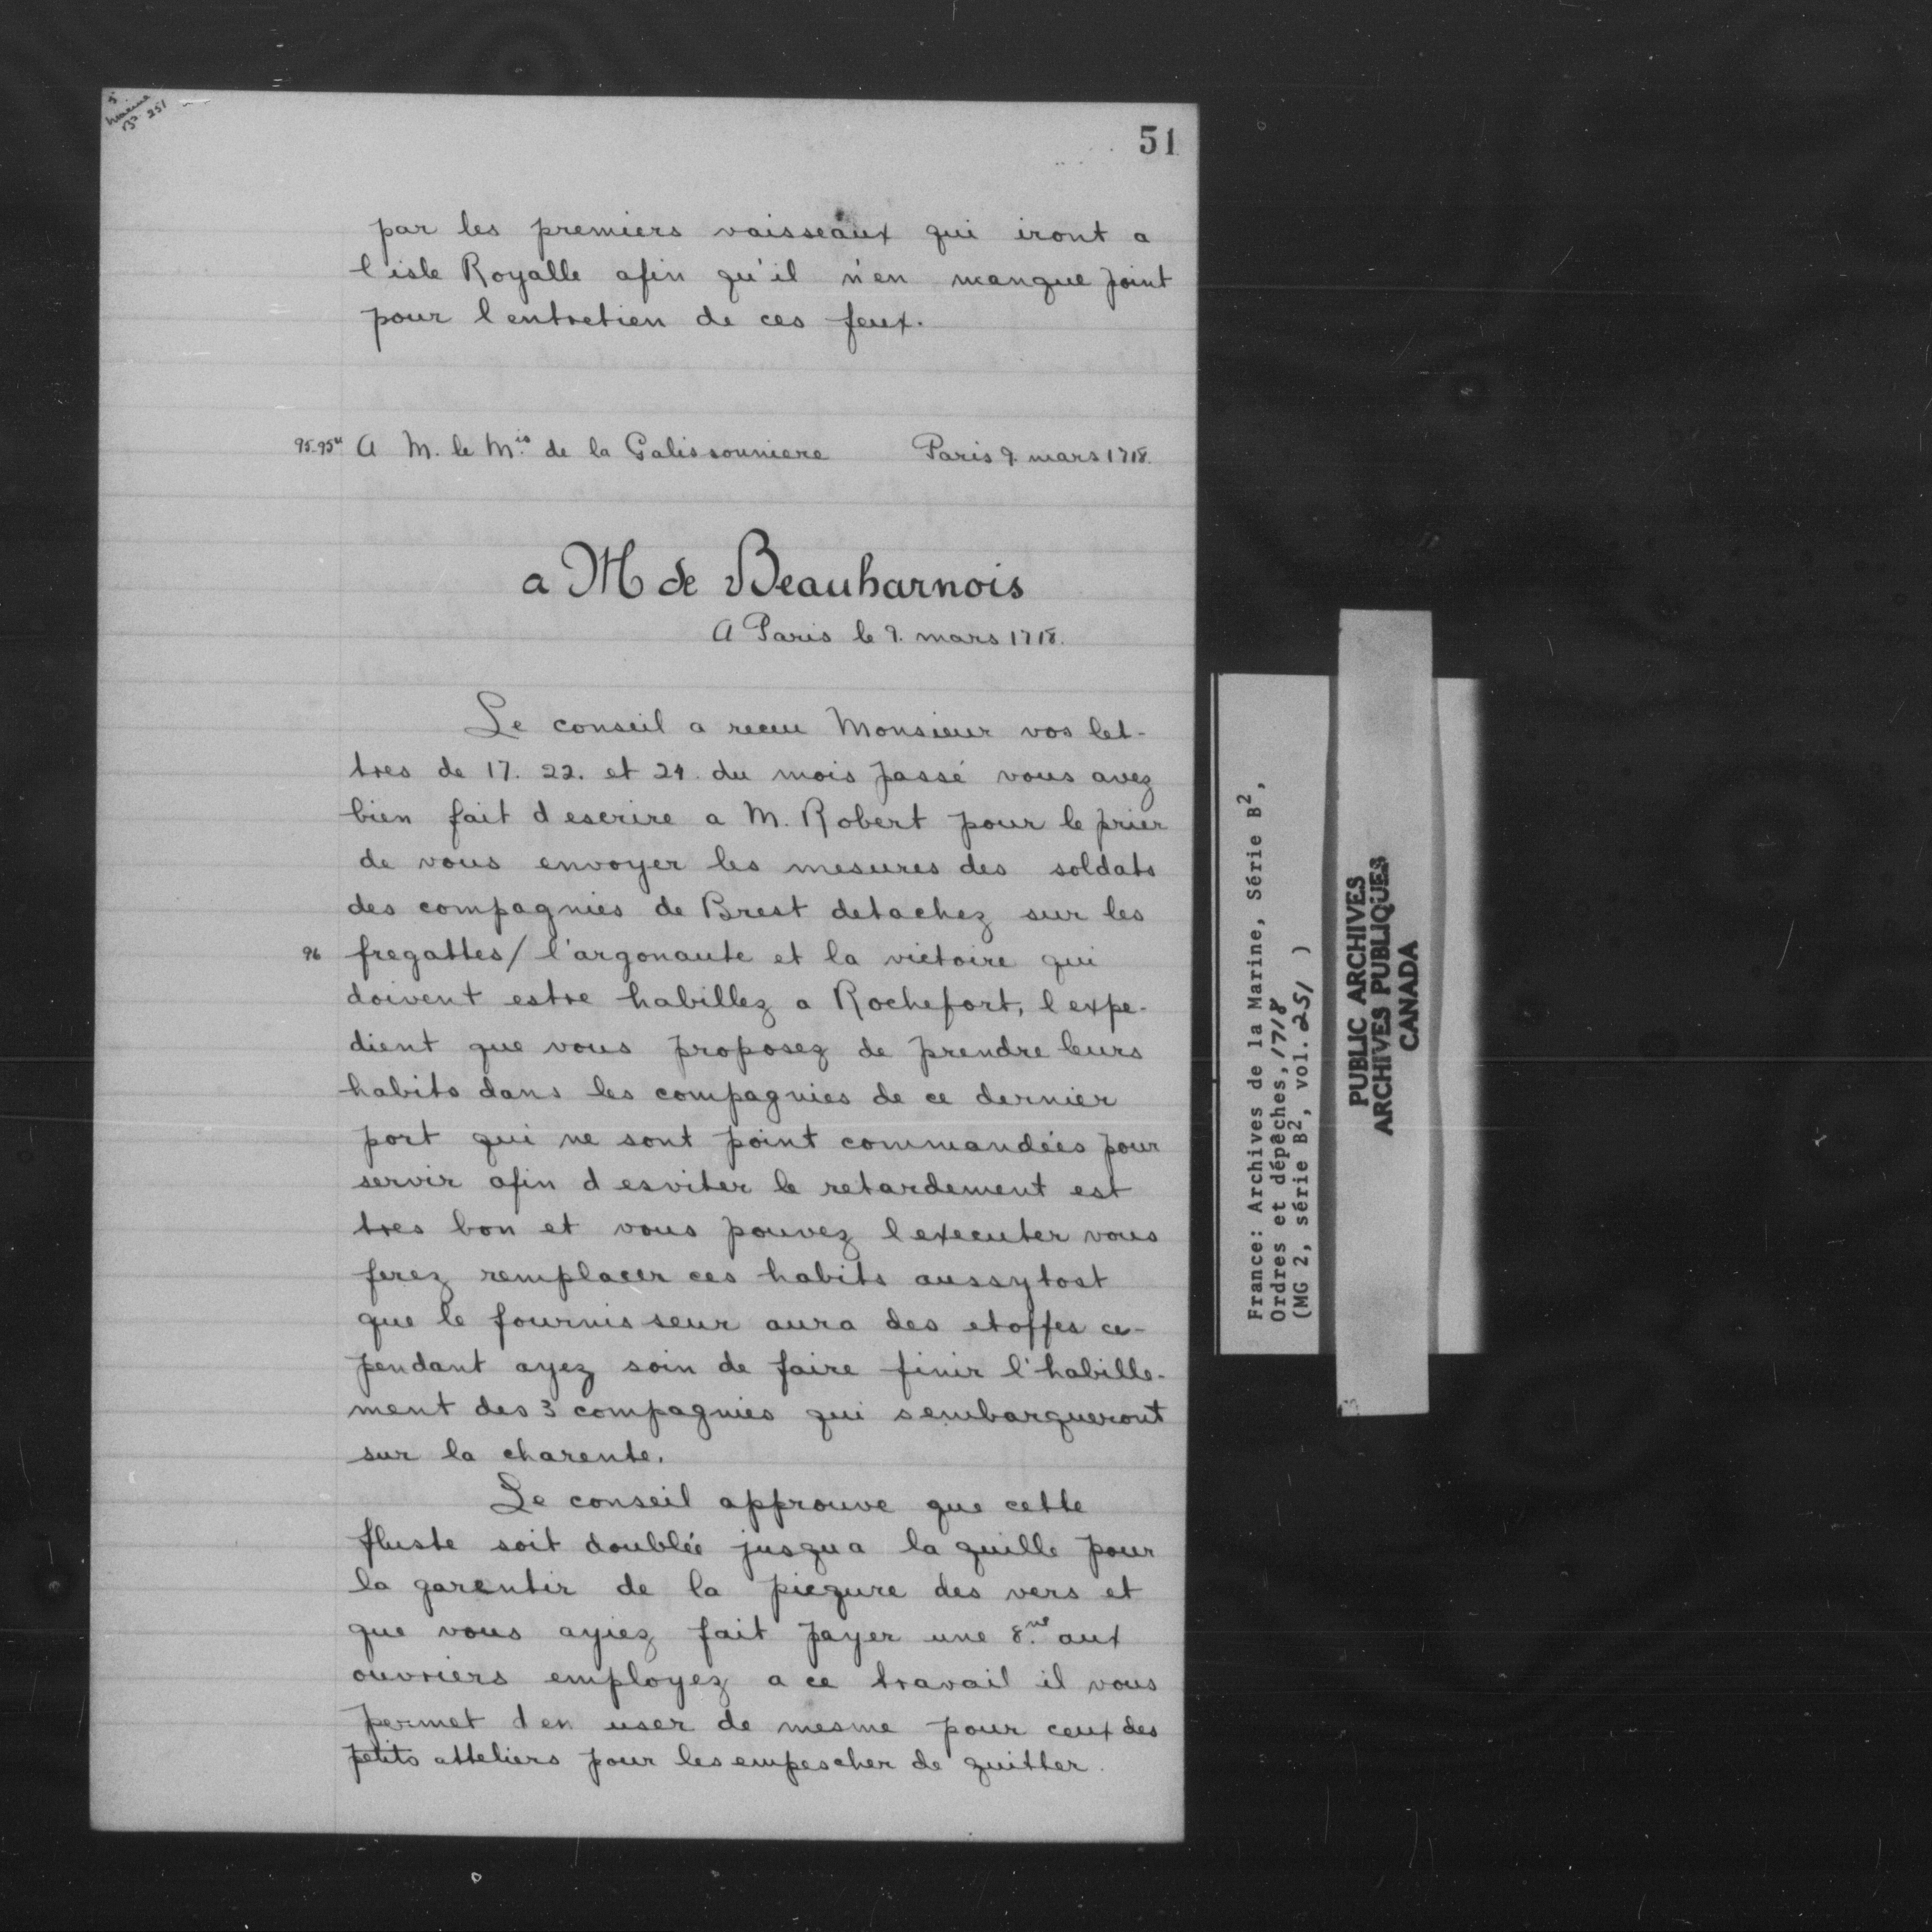 5
marine
B² 251
51
par les premiers vaisseaux qui iront a
l'isle Royalle afin qu'il n'en manque point
pour l entretien de ces feux.
95-95ᵛ A M. le Mis de la Galissonniere Paris 9. mars 1718.
a M de Beauharnois
A Paris le 9. mars 1718.
Le conseil a receu Monsieur vos let-
tres de 17. 22. et 24. du mois passé vous avez
bien fait d escrire a M. Robert pour le prier
de vous envoyer les mesures des soldats
des compagnies de Brest detachez sur les
96 fregattes/ l'argonaute et la victoire qui
doivent estre habillez a Rochefort, l expe-
dient que vous proposez de prendre leurs
habits dans les compagnies de ce dernier
port qui ne sont point commandées pour
servir afin d esviter le retardement est
tres bon et vous pouvez l executer vous
ferez remplacer ces habits aussytost
que le fournisseur aura des etoffes ce-
pendant ayez soin de faire finir l'habille-
ment des 3 compagnies qui s embarqueront
sur la charente.
Le conseil approuve que cette
fluste soit doublée jusqu a la quille pour
la garentir de la picqure des vers et
que vous ayiez fait payer une 8.ne aux
ouvriers employez a ce travail il vous
permet d en user de mesme pour ceux des
petits atteliers pour les empescher de quitter.
France: Archives de la Marine, Série B²,
Ordres et dépêches, 1718
(MG 2, série B², vol. 251 )
PUBLIC ARCHIVES
ARCHIVES PUBLIQUES
CANADA